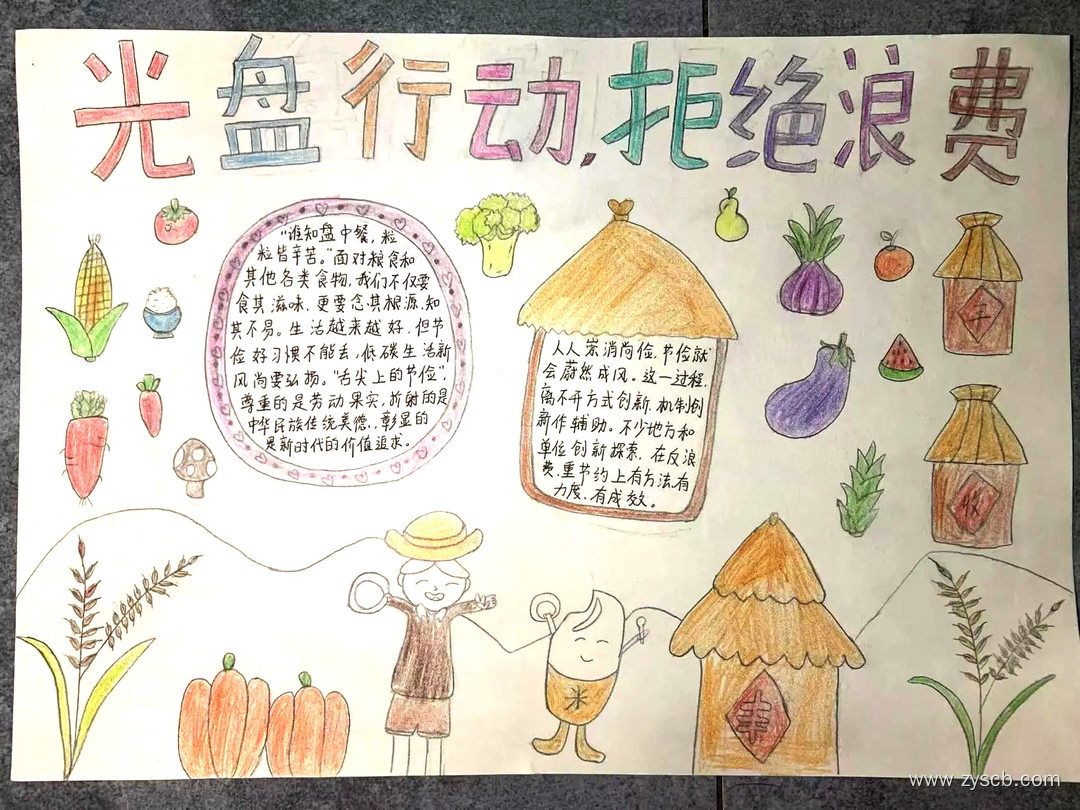 光盘行动，拒绝浪费
"谁知盘中餐，粒
粒皆辛苦。"面对粮食和
其他各类食物，我们不仅要
食其滋味，更要念其根源，知
其不易。生活越来越好，但节
俭好习惯不能丢，低碳生活新
风尚要弘扬。"舌尖上的节俭"，
尊重的是劳动果实，折射的是
中华民族传统美德，彰显的
是新时代的价值追求。
人人崇消尚俭，节俭就
会蔚然成风。这一过程，
离不开方式创新、机制创
新作辅助。不少地方和
单位创新探索，在反浪
费、重节约上有方法、有
力度、有成效。
丰
收
米
www.zyscb.com